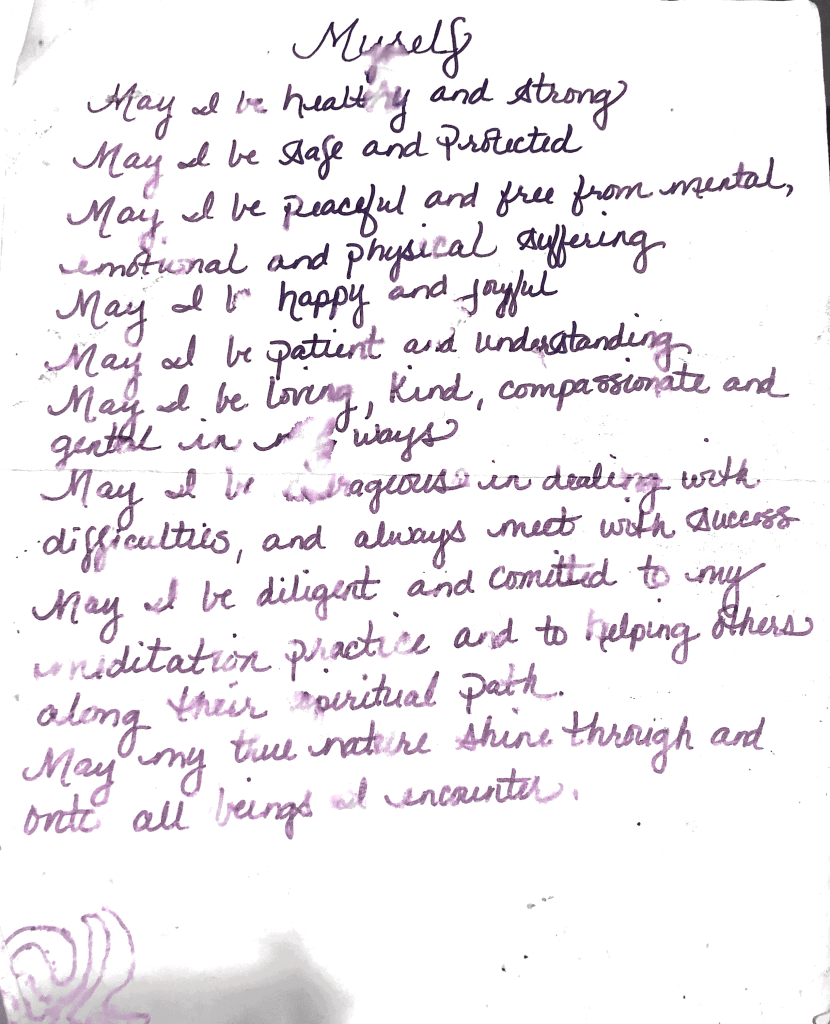 Myself
May I be healthy and strong
May I be safe and protected
May I be peaceful and free from mental,
emotional and physical suffering
May I b happy and joyful
May I be patient and understanding
May I be loving, kind, compassionate and
gentel in ways
May I be courageous in dealing with
difficulties, and always meet with success
May I be diligent and comitted to my
meditation practice and to helping others
along their spiritual path.
May my true nature shine through and
onto all beings I encounter.